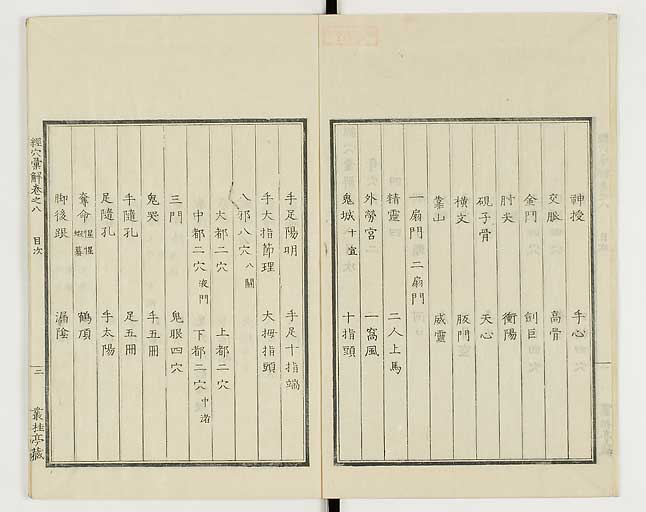 神授 手心
交脈 高骨
金門 劍巨
肘尖 衝陽
硯子骨 天心
橫文 板門
靠山 威靈
一扇門 二扇門
精靈 二人上馬
外勞宮 一窩風
鬼城 十宣 十指頭
手足陽明 手足十指端
手大指節理 大拇指頭
八邪八穴 八關
大都二穴 上都二穴
中都二穴 液門 下都二穴 中渚
三門 鬼眼四穴
鬼哭 手五冊
手隨孔 足五冊
足隨孔 手太陽
奪命 惺惺 蝦蟇 鶴頂
脚後跟 漏陰
經穴彙解卷之八 目次 三 叢桂亭藏